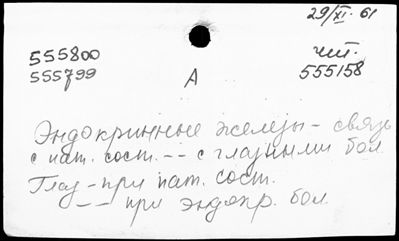 29/XI. 61
555800 чит.
555799 А 555158
Эндокринные железы - связь
с пат. сост. -- с глазными бол.
Глаз - при пат. сост.
-- при эндокр. бол.